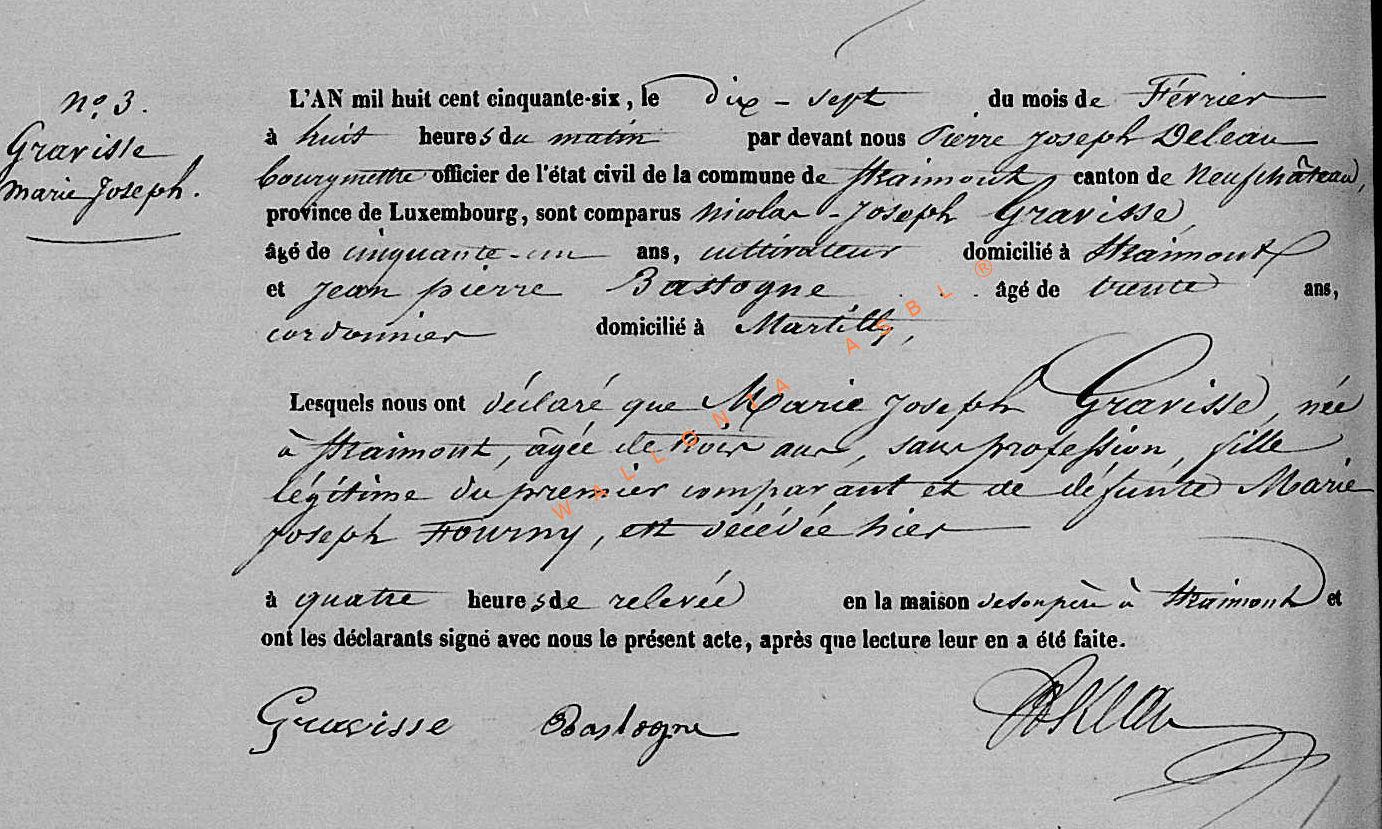 nº 3.
Gravisse
Marie Joseph.
L'AN mil huit cent cinquante-six, le dix-sept du mois de Février
à huit heures du matin par devant nous Pierre Joseph Deleau
bourgmestre officier de l'état civil de la commune de Straimont, canton de Neufchâteau,
province de Luxembourg, sont comparus Nicolas-Joseph Gravisse,
âgé de cinquante-un ans, cultivateur domicilié à Straimont
et Jean pierre Bastogne âgé de trente ans,
cordonnier domicilié à Martilly,
Lesquels nous ont déclaré que Marie Joseph Gravisse, née
à Straimont, âgée de trois ans, sans profession, fille
légitime du premier comparant et de défunte Marie
Joseph Fourny, est décédée hier
à quatre heures de relevée en la maison de son père à Straimont et
ont les déclarants signé avec nous le présent acte, après que lecture leur en a été faite.
Gravisse Bastogne Deleau
WALLONIA ASBL ®